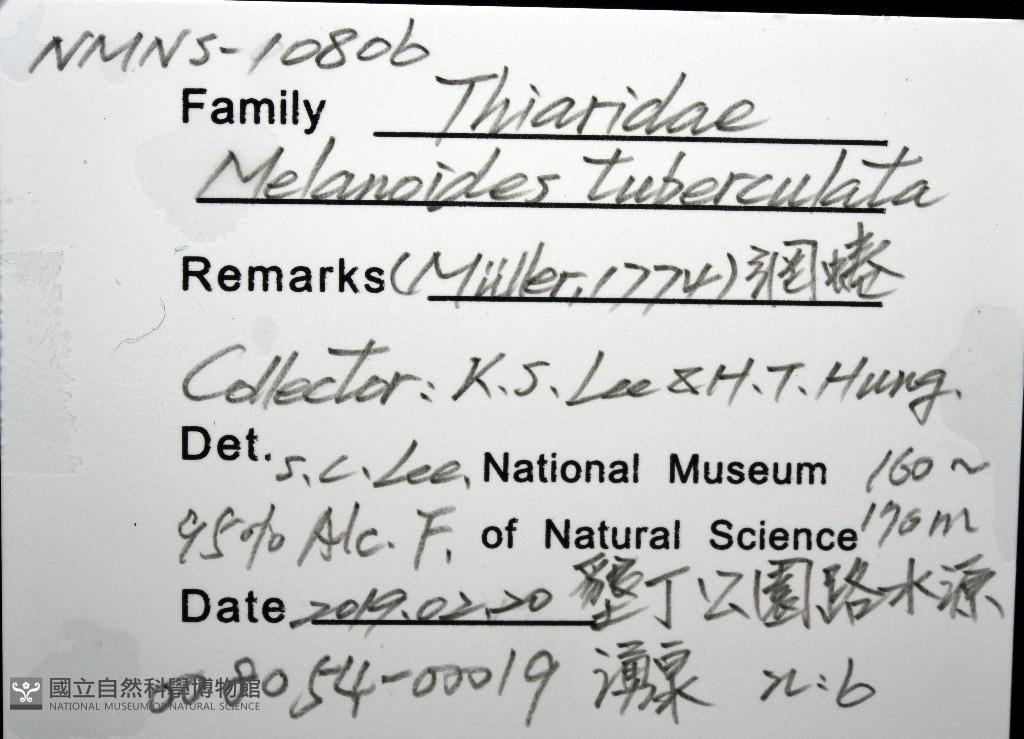 NMNS-1080b
Family Thiaridae
Melanoides tuberculata
Remarks (Müller, 1774) 網蜷
Collector: K.S. Lee & H.T. Hung.
Det. S.C. Lee, National Museum 160~
95% Alc. F. of Natural Science 170m
Date 2019.02.20 墾丁公園路水源
8054-00019 湧泉 n:6
國立自然科學博物館
NATIONAL MUSEUM OF NATURAL SCIENCE